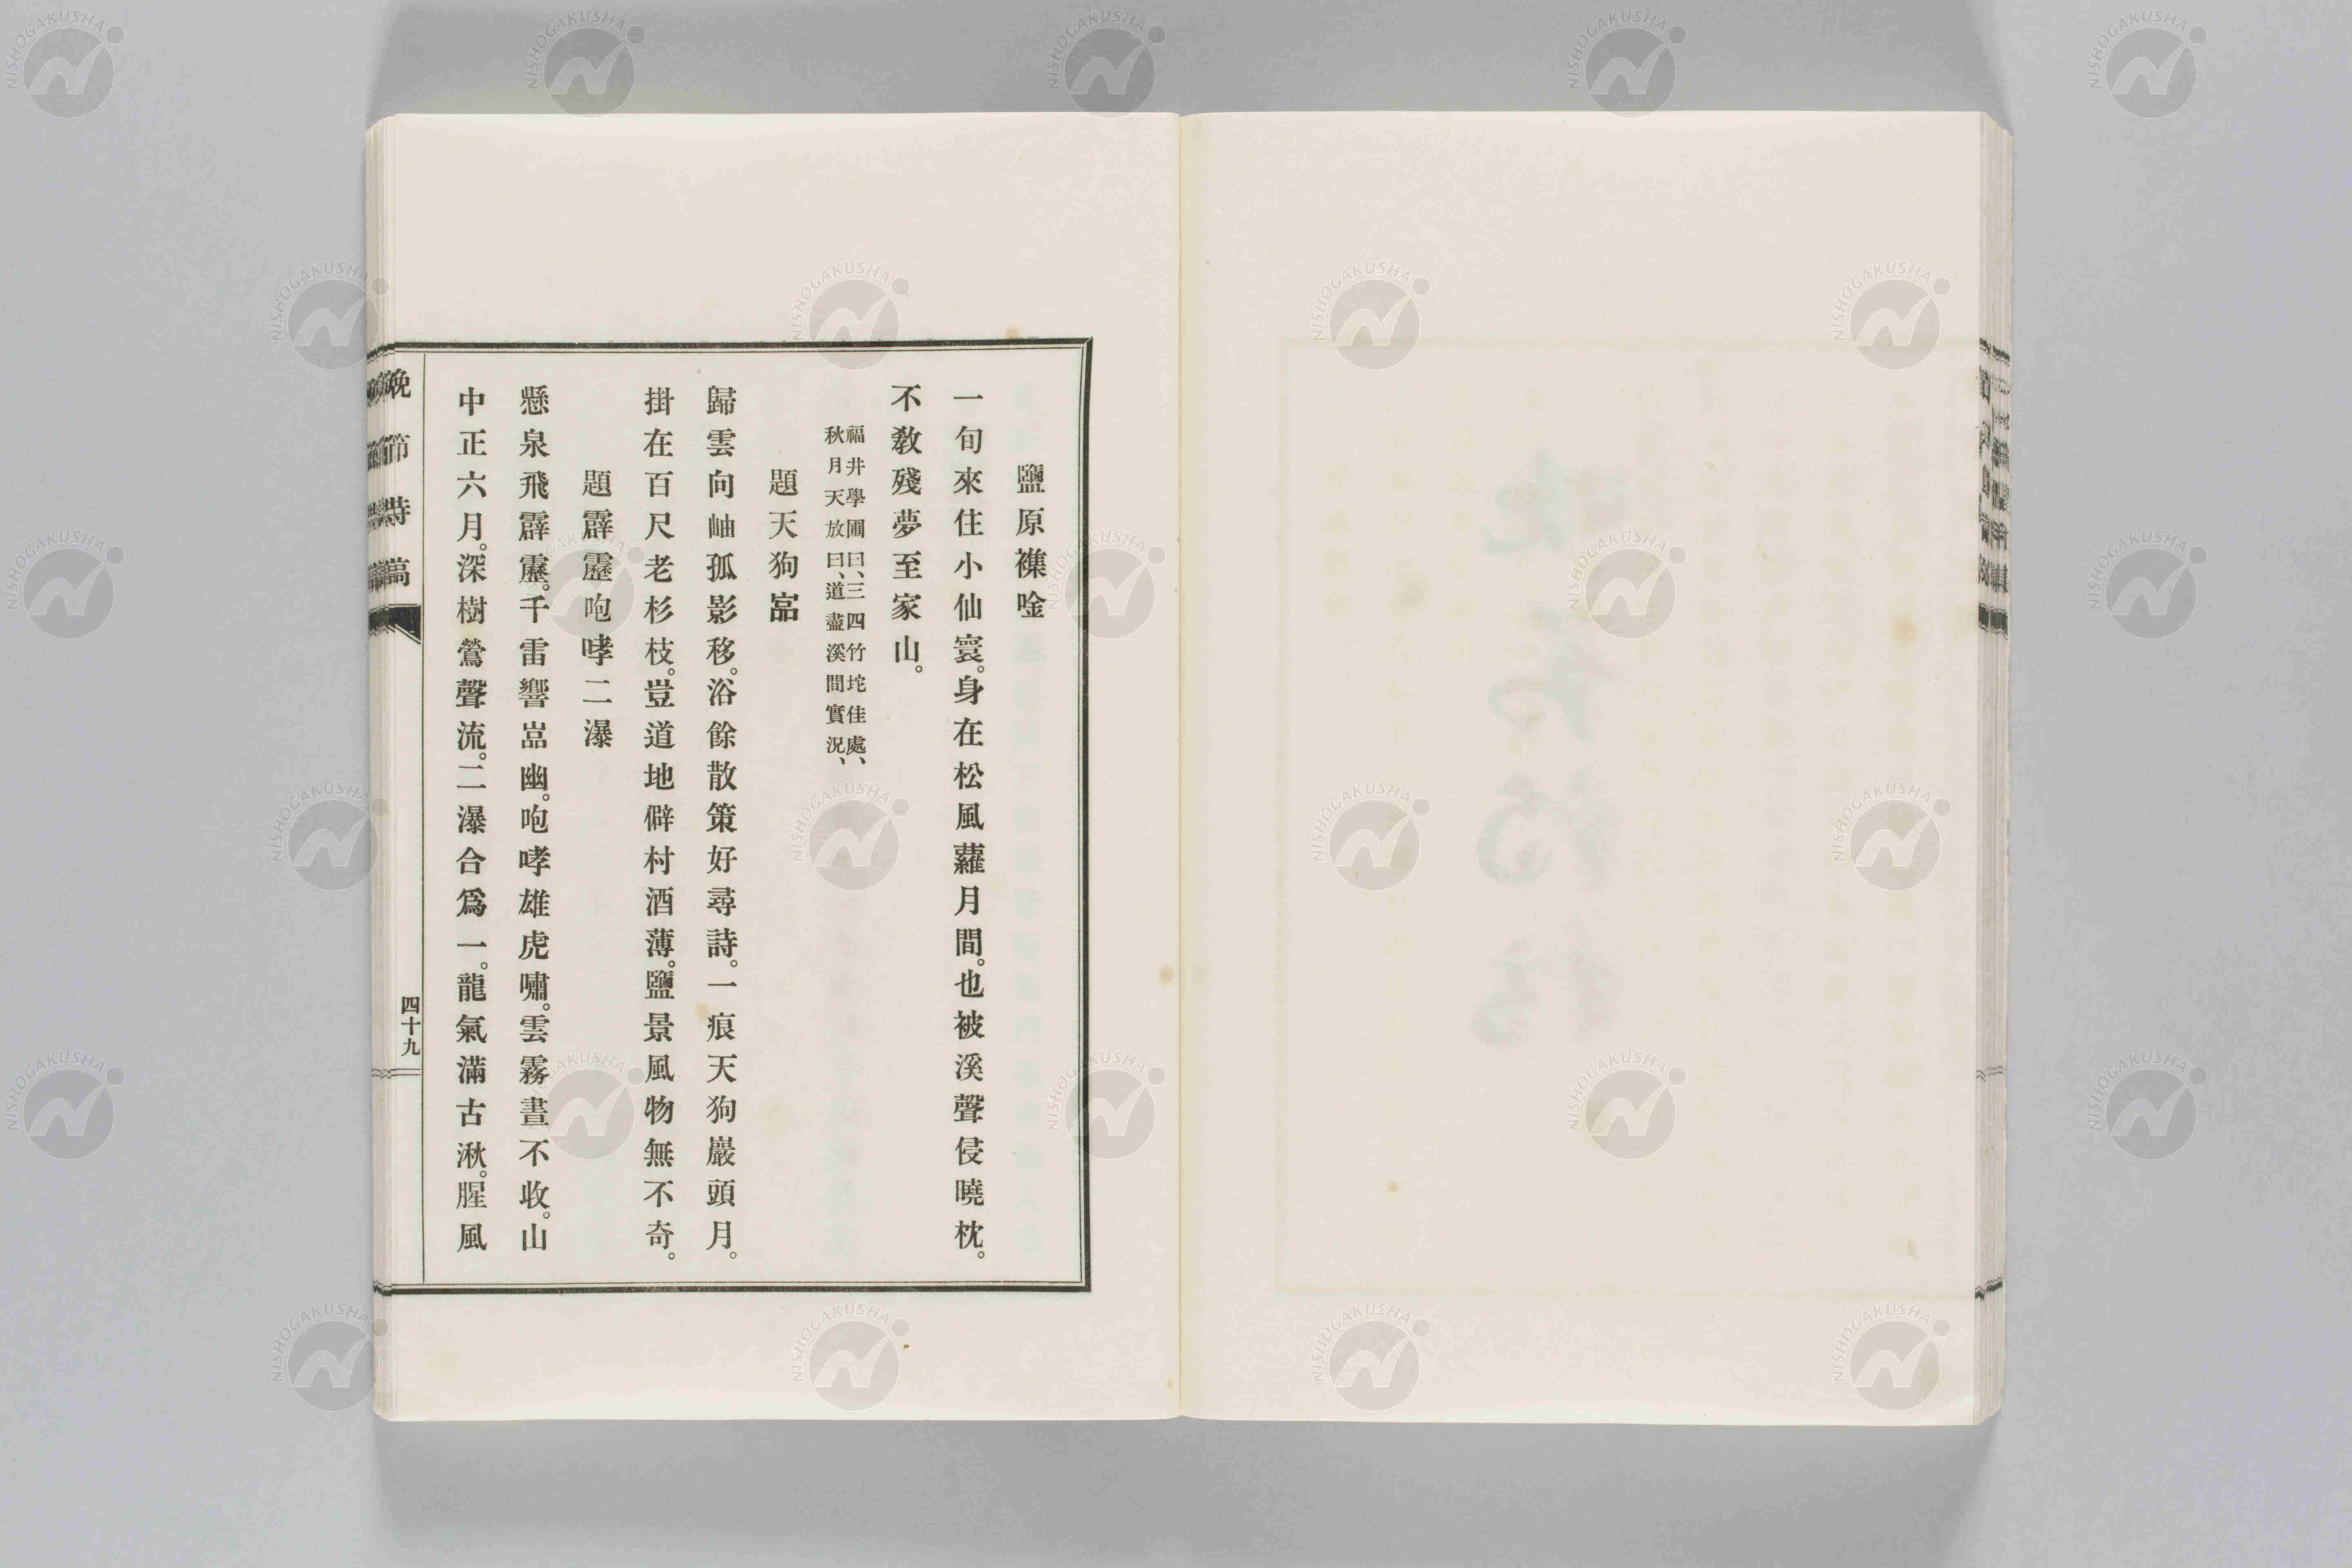 鹽原襍唫
一旬來住小仙寰。身在松風蘿月間。也被溪聲侵曉枕。
不敎殘夢至家山。
福井學圃曰、三四竹坨佳處、
秋月天放曰、道盡溪間實況、
題天狗嵓
歸雲向岫孤影移。浴餘散策好尋詩。一痕天狗巖頭月。
掛在百尺老杉枝。豈道地僻村酒薄。鹽景風物無不奇。
題霹靂咆哮二瀑
懸泉飛霹靂。千雷響嵓幽。咆哮雄虎嘯。雲霧晝不收。山
中正六月。深樹鶯聲流。二瀑合爲一。龍氣滿古湫。腥風
晩節詩藁
四十九
NISHOGAKUSHA